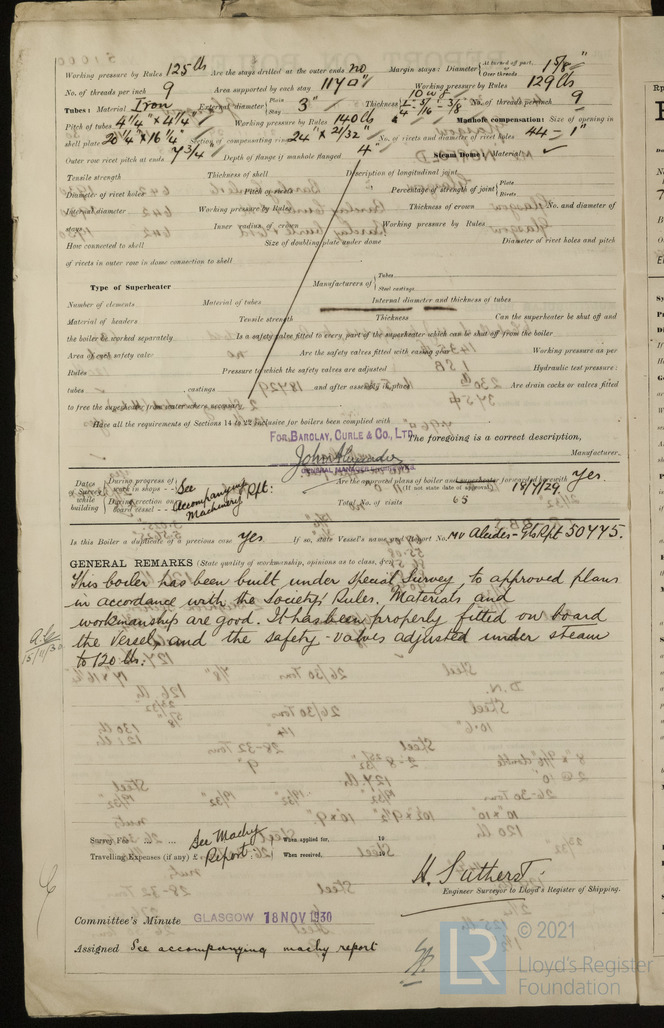 Working pressure by Rules 125 lb Are the stays drilled at the outer ends no Margin stays: Diameter { At turned off part, Over threads 1 5/8"
No. of threads per inch 9 Area supported by each stay 117 □" Working pressure by Rules 129 lb
Tubes: Material Iron External diameter { Plain Stay 3" Thickness { No. of threads per inch 9
Pitch of tubes 4 1/4" x 4 1/4" Working pressure by Rules 140 lb Manhole compensation: Size of opening in
shell plate 20 1/4" x 16 1/4" Section of compensating ring 24" x 21/32" No. of rivets and diameter of rivet holes 44 - 1"
Outer row rivet pitch at ends 7 3/4" Depth of flange if manhole flanged 4" Steam Dome: Material
Tensile strength Thickness of shell Description of longitudinal joint
Diameter of rivet holes Pitch of rivets Percentage of strength of joint { Plate Rivets
Internal diameter Working pressure by Rules Thickness of crown No. and diameter of
stays Inner radius of crown Working pressure by Rules
How connected to shell Size of doubling plate under dome Diameter of rivet holes and pitch
of rivets in outer row in dome connection to shell
Type of Superheater Manufacturers of { Tubes Steel castings
Number of elements Material of tubes Internal diameter and thickness of tubes
Material of headers Tensile strength Thickness Can the superheater be shut off and
the boiler be worked separately Is a safety valve fitted to every part of the superheater which can be shut off from the boiler
Area of each safety valve Are the safety valves fitted with easing gear Working pressure as per
Rules Pressure to which the safety valves are adjusted Hydraulic test pressure:
tubes castings and after assembly in place Are drain cocks or valves fitted
to free the superheater from water where necessary
Have all the requirements of Sections 14 to 22 inclusive for boilers been complied with
FOR BARCLAY, CURLE & CO., LTD. The foregoing is a correct description,
John Alexander Manufacturer.
GENERAL MANAGER
Dates of Survey while building { During progress of work in shops - - During erection on board vessel - - - See Accompanying Machinery Rpt: Are the approved plans of boiler and superheater forwarded herewith Yes
(If not state date of approval.) 18/7/29.
Total No. of visits 65
Is this Boiler a duplicate of a previous case Yes If so, state Vessel's name and Report No. MV Alcides - Gls Rpt 50775.
GENERAL REMARKS (State quality of workmanship, opinions as to class, &c.
This boiler has been built under Special Survey to approved plans
in accordance with the Society's Rules. Materials and
workmanship are good. It has been properly fitted on board
the vessel, and the safety-valves adjusted under steam
to 120 lbs.
Survey Fee ... ... See Machy When applied for, 19
Travelling Expenses (if any) £ Report: When received, 19
H. Sutherst.
Engineer Surveyor to Lloyd's Register of Shipping.
Committee's Minute GLASGOW 18 NOV 1930
Assigned See accompanying machy report
LR © 2021
Lloyd's Register
Foundation